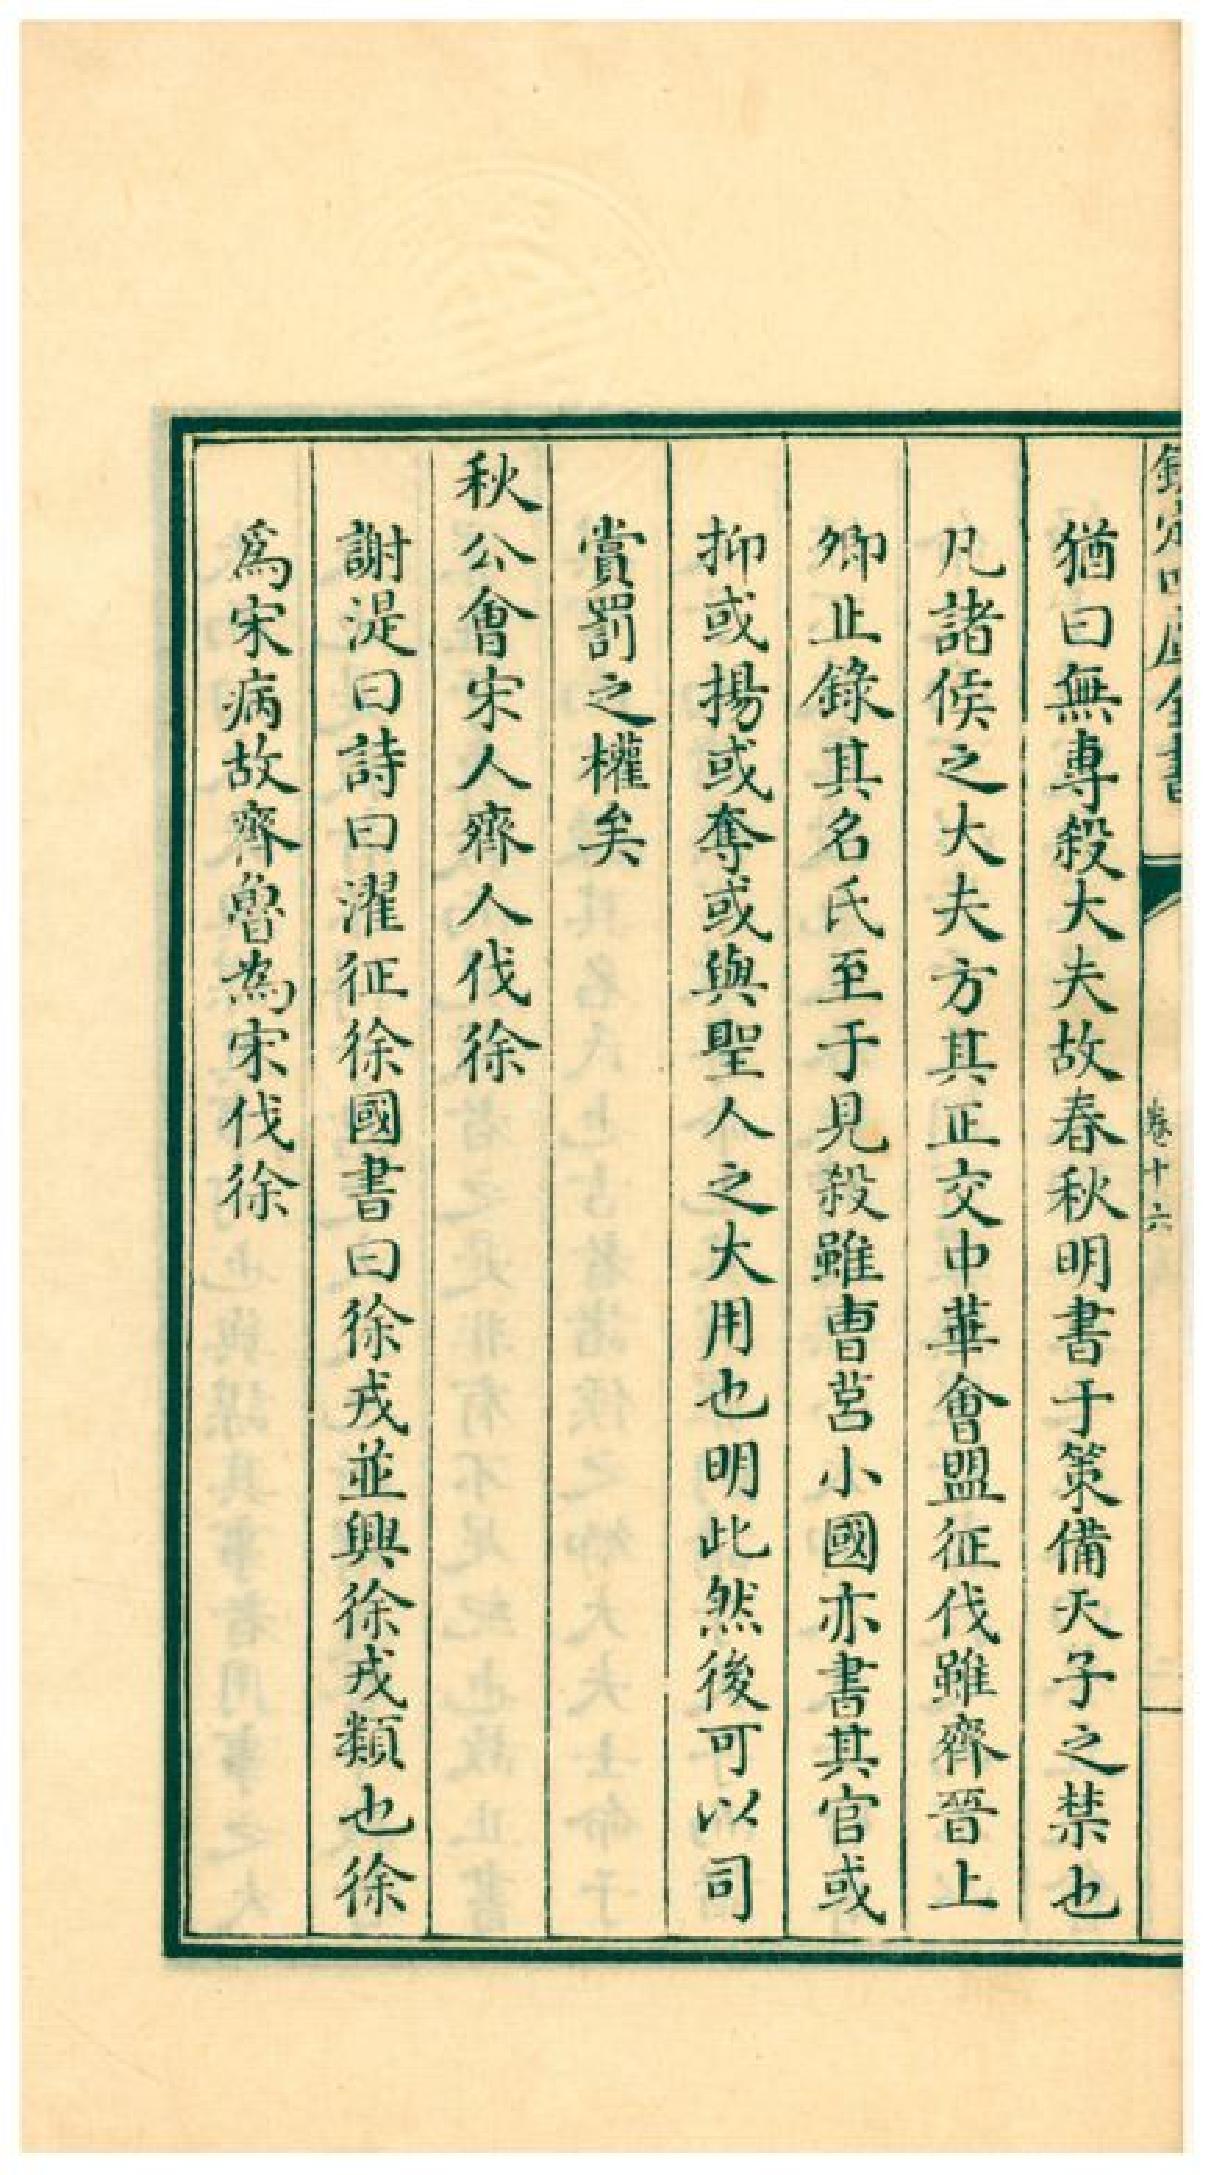 欽定四庫全書
卷十六
猶曰無專殺大夫故春秋明書于策備天子之禁也
凡諸侯之大夫方其正交中華會盟征伐雖齊晉上
卿止錄其名氏至于見殺雖曹莒小國亦書其官或
抑或揚或奪或與聖人之大用也明此然後可以司
賞罰之權矣
秋公會宋人齊人伐徐
謝湜曰詩曰濯征徐國書曰徐戎並興徐戎類也徐
爲宋病故齊魯為宋伐徐